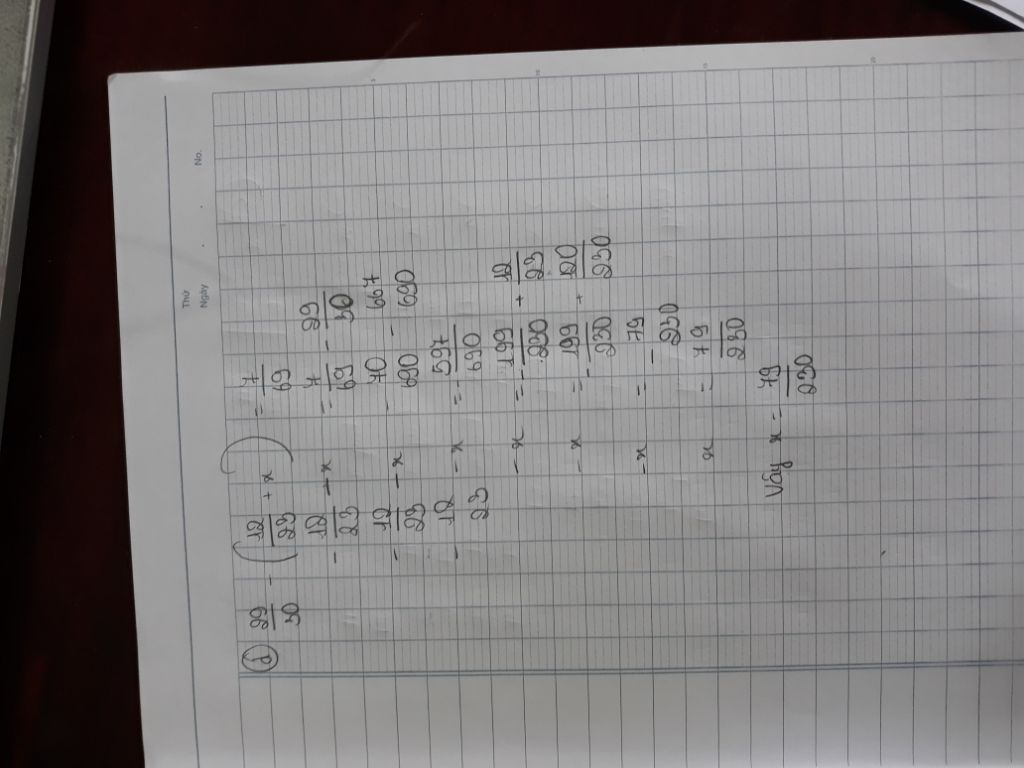 Thứ
Ngày . . No.
d) 29/30 - (12/23 + x) = 7/69
- 12/23 - x = 7/69 - 29/30
- 12/23 - x = 70/690 - 667/690
- 12/23 - x = - 597/690
- x = - 199/230 + 12/23
- x = - 199/230 + 120/230
- x = - 79/230
x = 79/230
Vậy x = 79/230